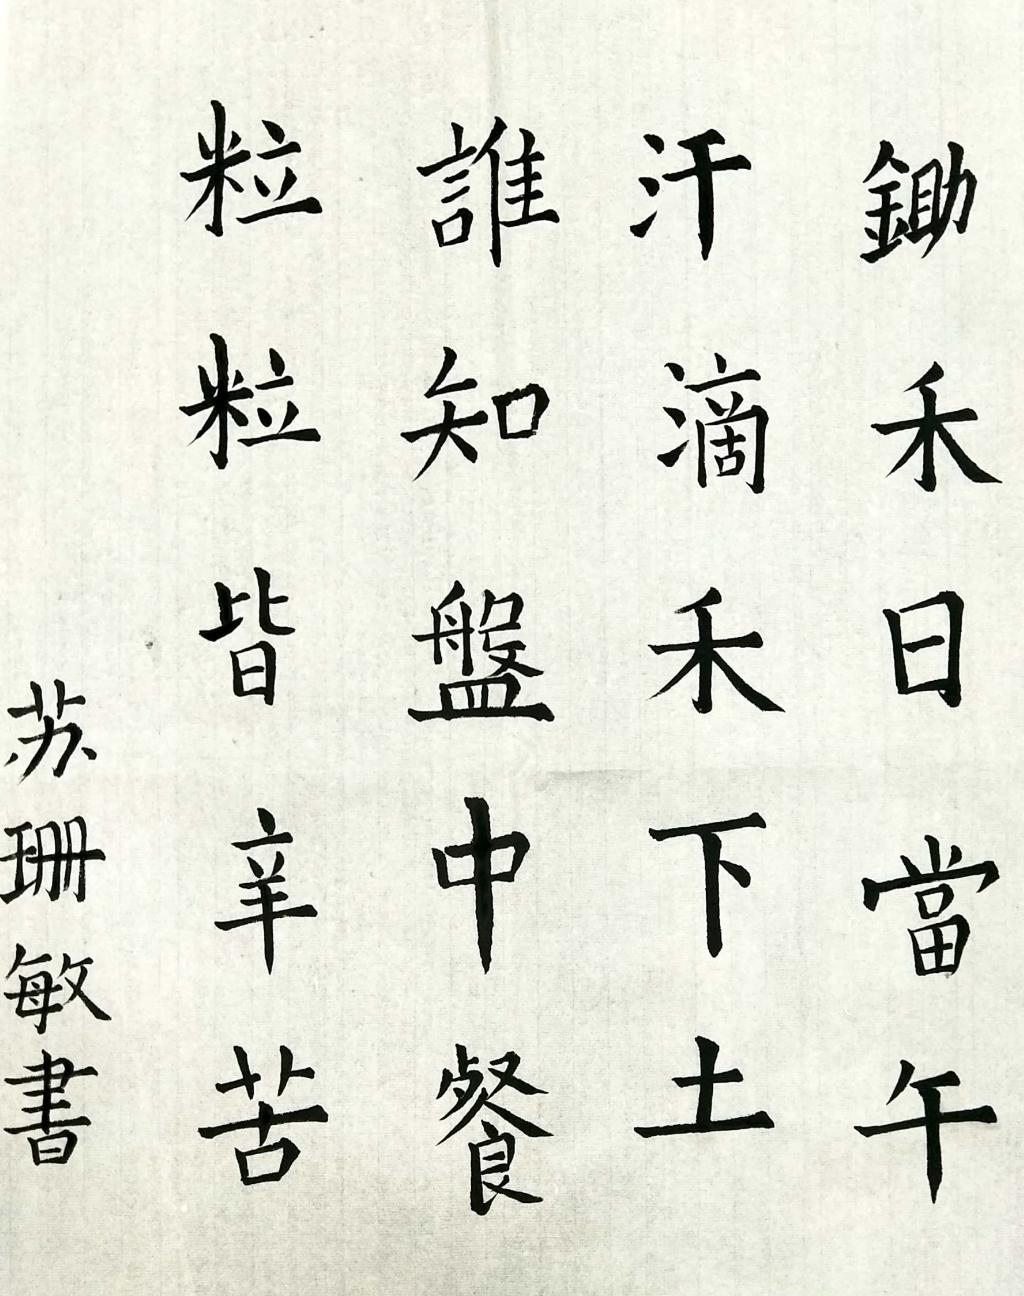 鋤禾日當午
汗滴禾下土
誰知盤中餐
粒粒皆辛苦
苏珊敏書